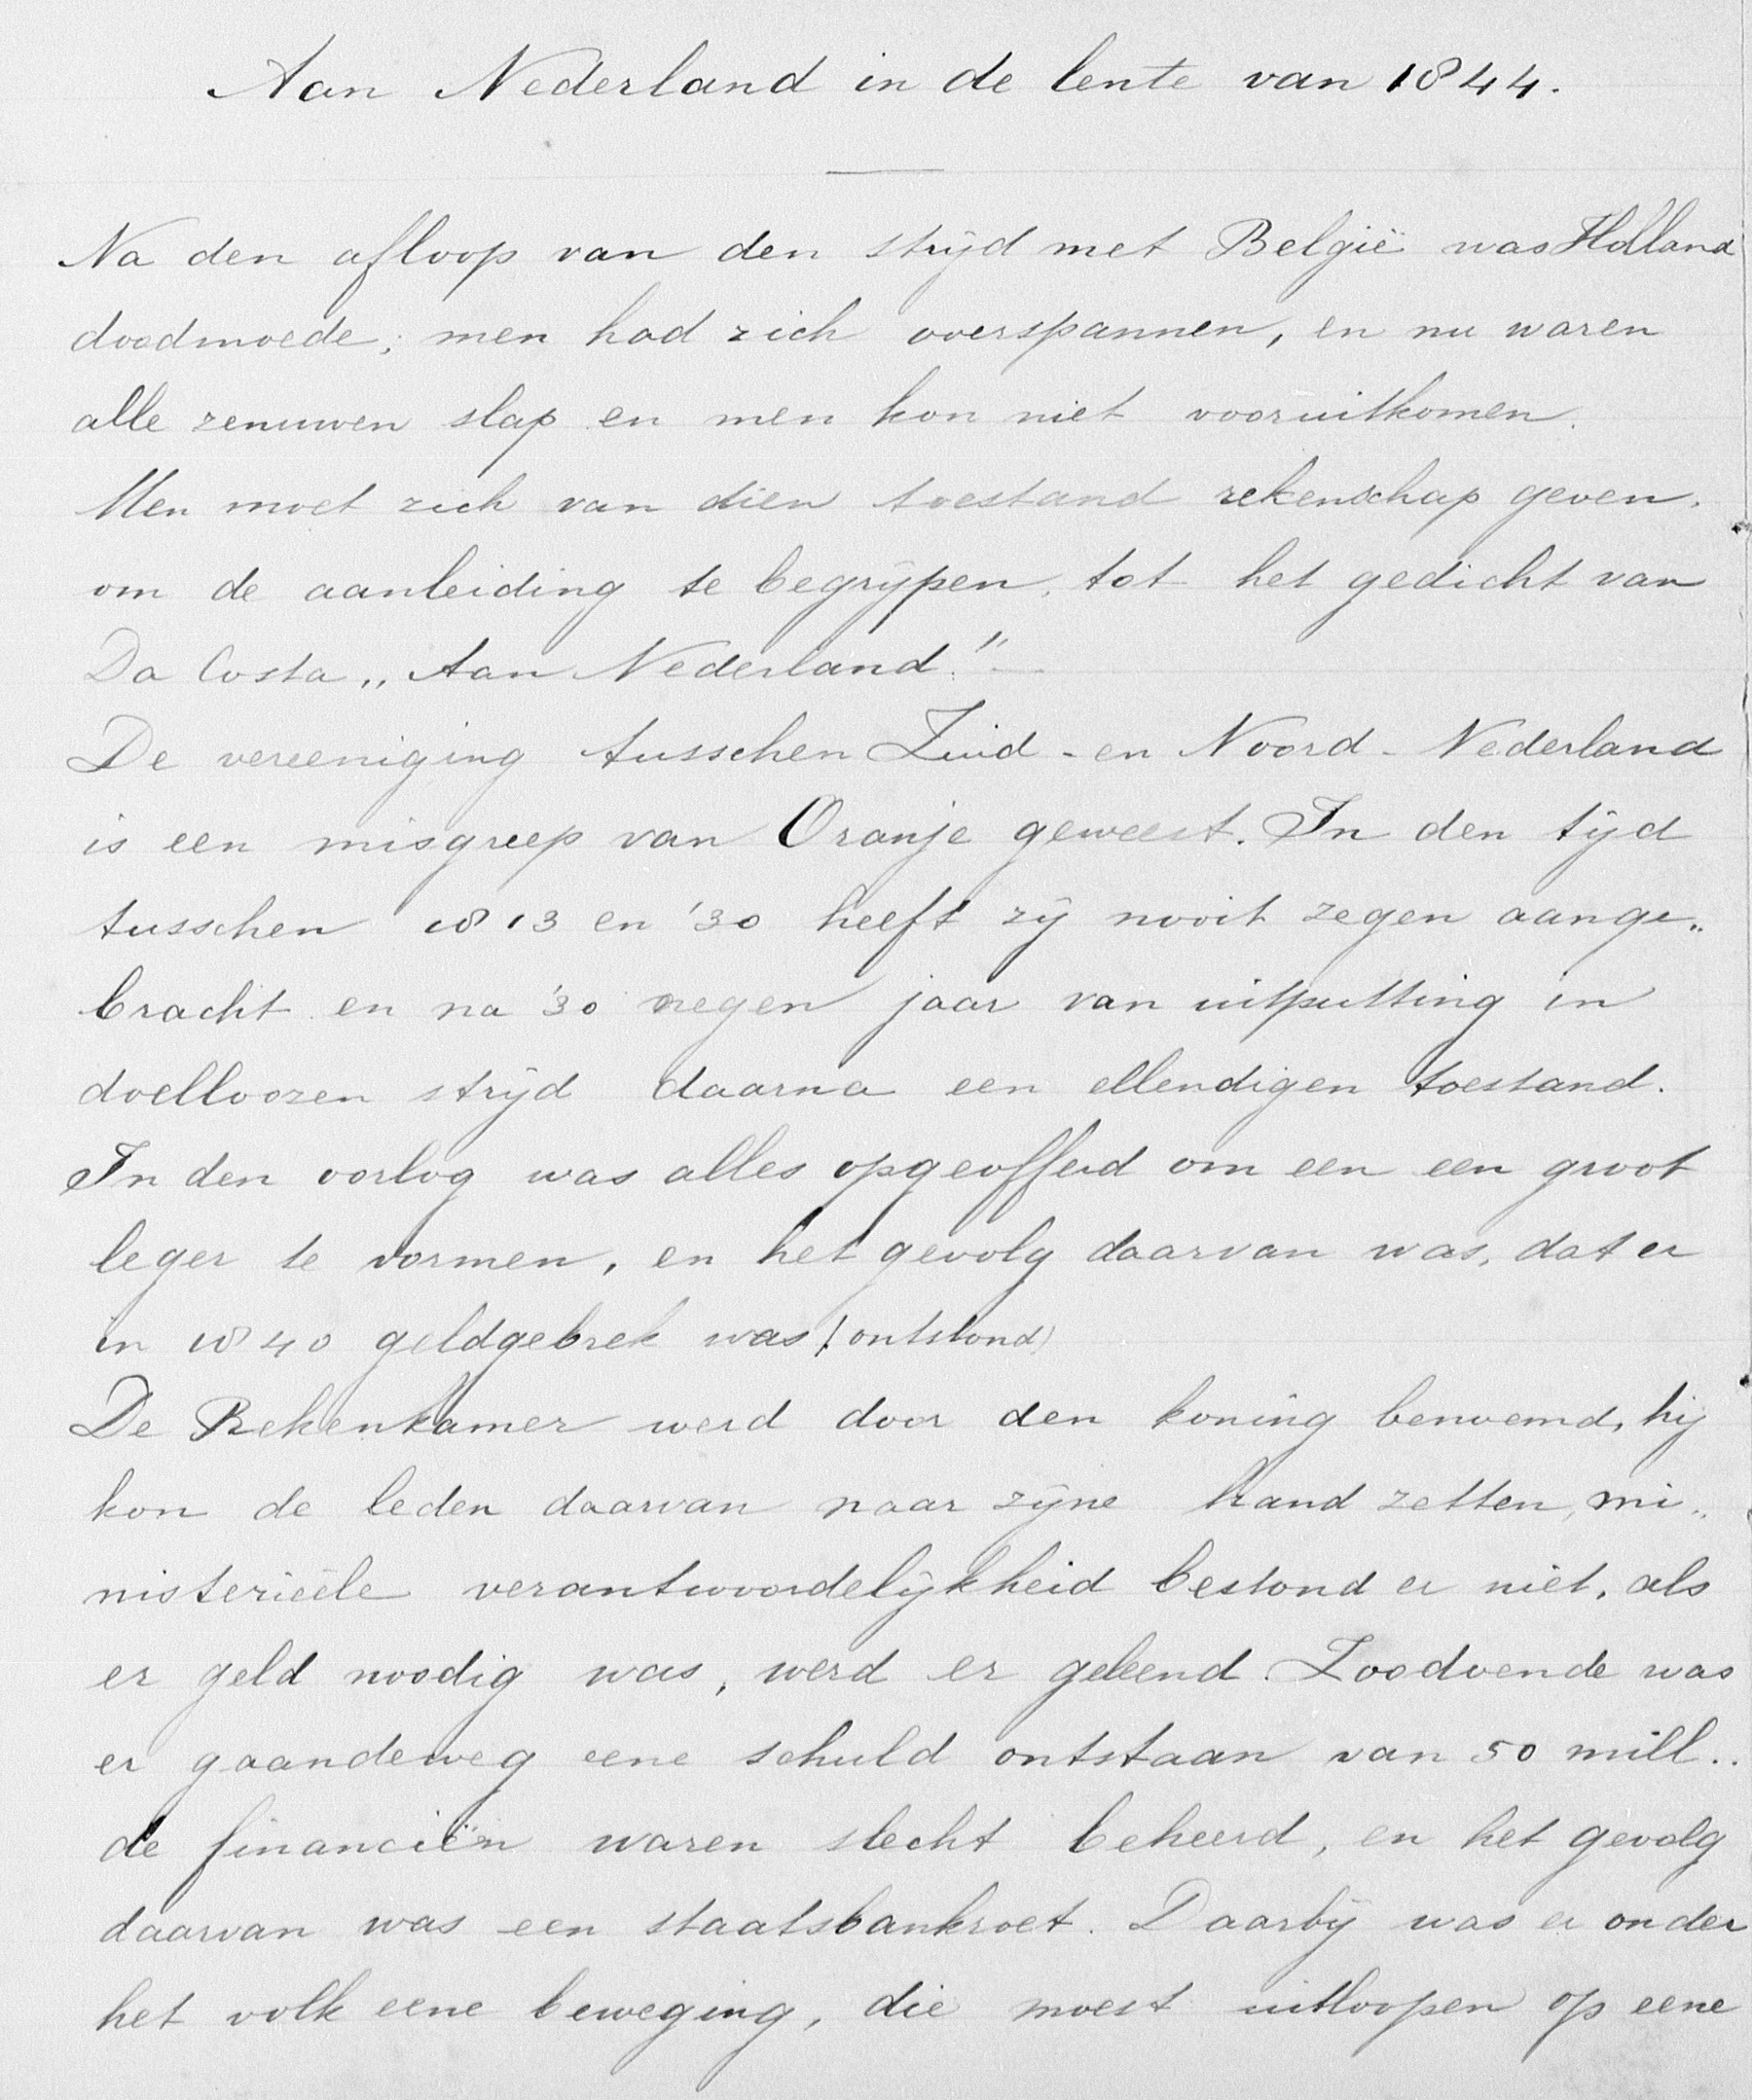 Aan Nederland in de lente van 1844.
Na den afloop van den strijd met België was Holland
doodmoede; men had zich overspannen, en nu waren
alle zenuwen slap en men kon niet vooruitkomen.
Men moet zich van dien toestand rekenschap geven,
om de aanleiding te begrijpen, tot het gedicht van
Da Costa „Aan Nederland."—
De vereeniging tusschen Zuid-en Noord-Nederland
is een misgreep van Oranje geweest. In den tijd
tusschen 1813 en '30 heeft zij nooit zegen aange„
bracht en na '30 negen jaar van uitputting in
doelloozen strijd daarna een ellendigen toestand.
In den oorlog was alles opgeofferd om een een groot
leger te vormen, en het gevolg daarvan was, dat er
in 1840 geldgebrek was (ontstond)
De Rekenkamer werd door den koning benoemd, hij
kon de leden daarvan naar zijne hand zetten, mi„
nisterieële verantwoordelijkheid bestond er niet, als
er geld noodig was, werd er geleend. Zoodoende was
er gaandeweg eene schuld ontstaan van 50 mill..
de financiën waren slecht beheerd, en het gevolg
daarvan was een staatsbankroet. Daarbij was er onder
het volk eene beweging, die moest uitloopen op eene